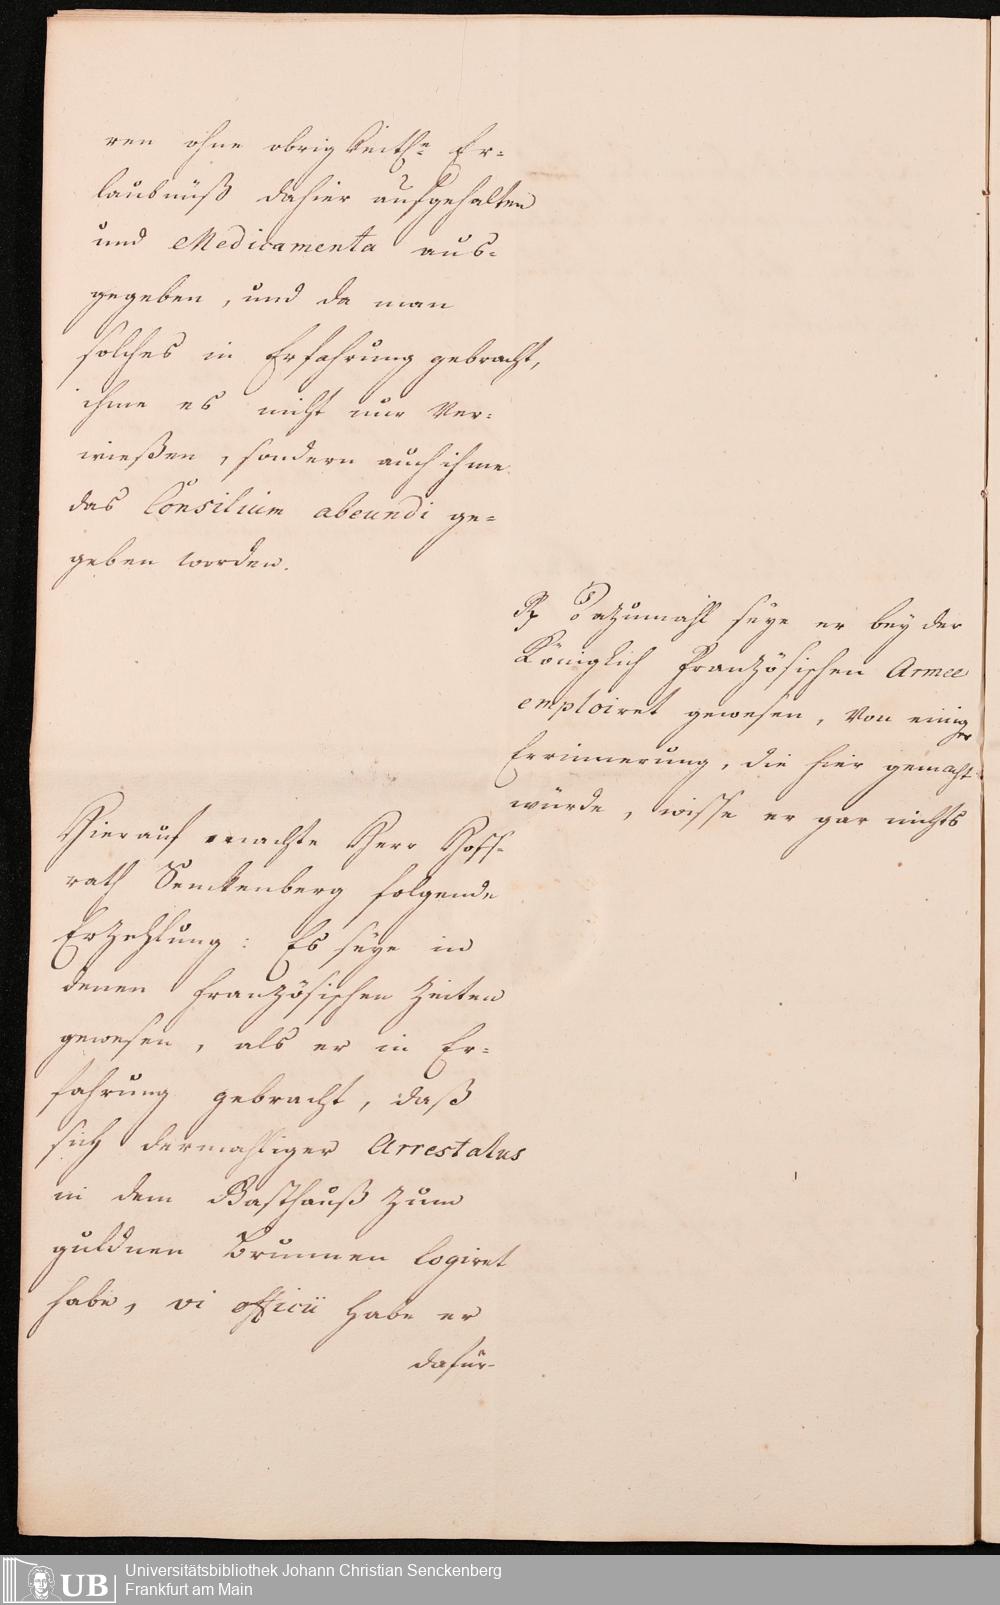 ren ohne obrigkeitl<sup>n</sup>= Er=
laubnüß dahier aufgehalten
und Medicamenta aus=
gegeben, und da man
solches in Erfahrung gebracht,
ihme es nicht nur Ver=
wießen, sondern auch ihme
das Consilium abeundi ge=
geben worden.
Rx Dazumahl seye er bey der
Königlich Französischen Armee
emploiret gewesen, Von einiger
Errinnerung, die hier gemacht
würde, wisse er gar nichts
Hierauf machte Herr Hoff=
rath Senckenberg folgende
Erzehlung: Es seye in
denen französischen Zeiten
gewesen, als er in Er=
fahrung gebracht, daß
sich dermahliger Arrestatus
in dem Gasthauß zum
guldnen Brunnen logiret
habe, vi officii habe er
dafür
Universitätsbibliothek Johann Christian Senckenberg
Frankfurt am Main
UB